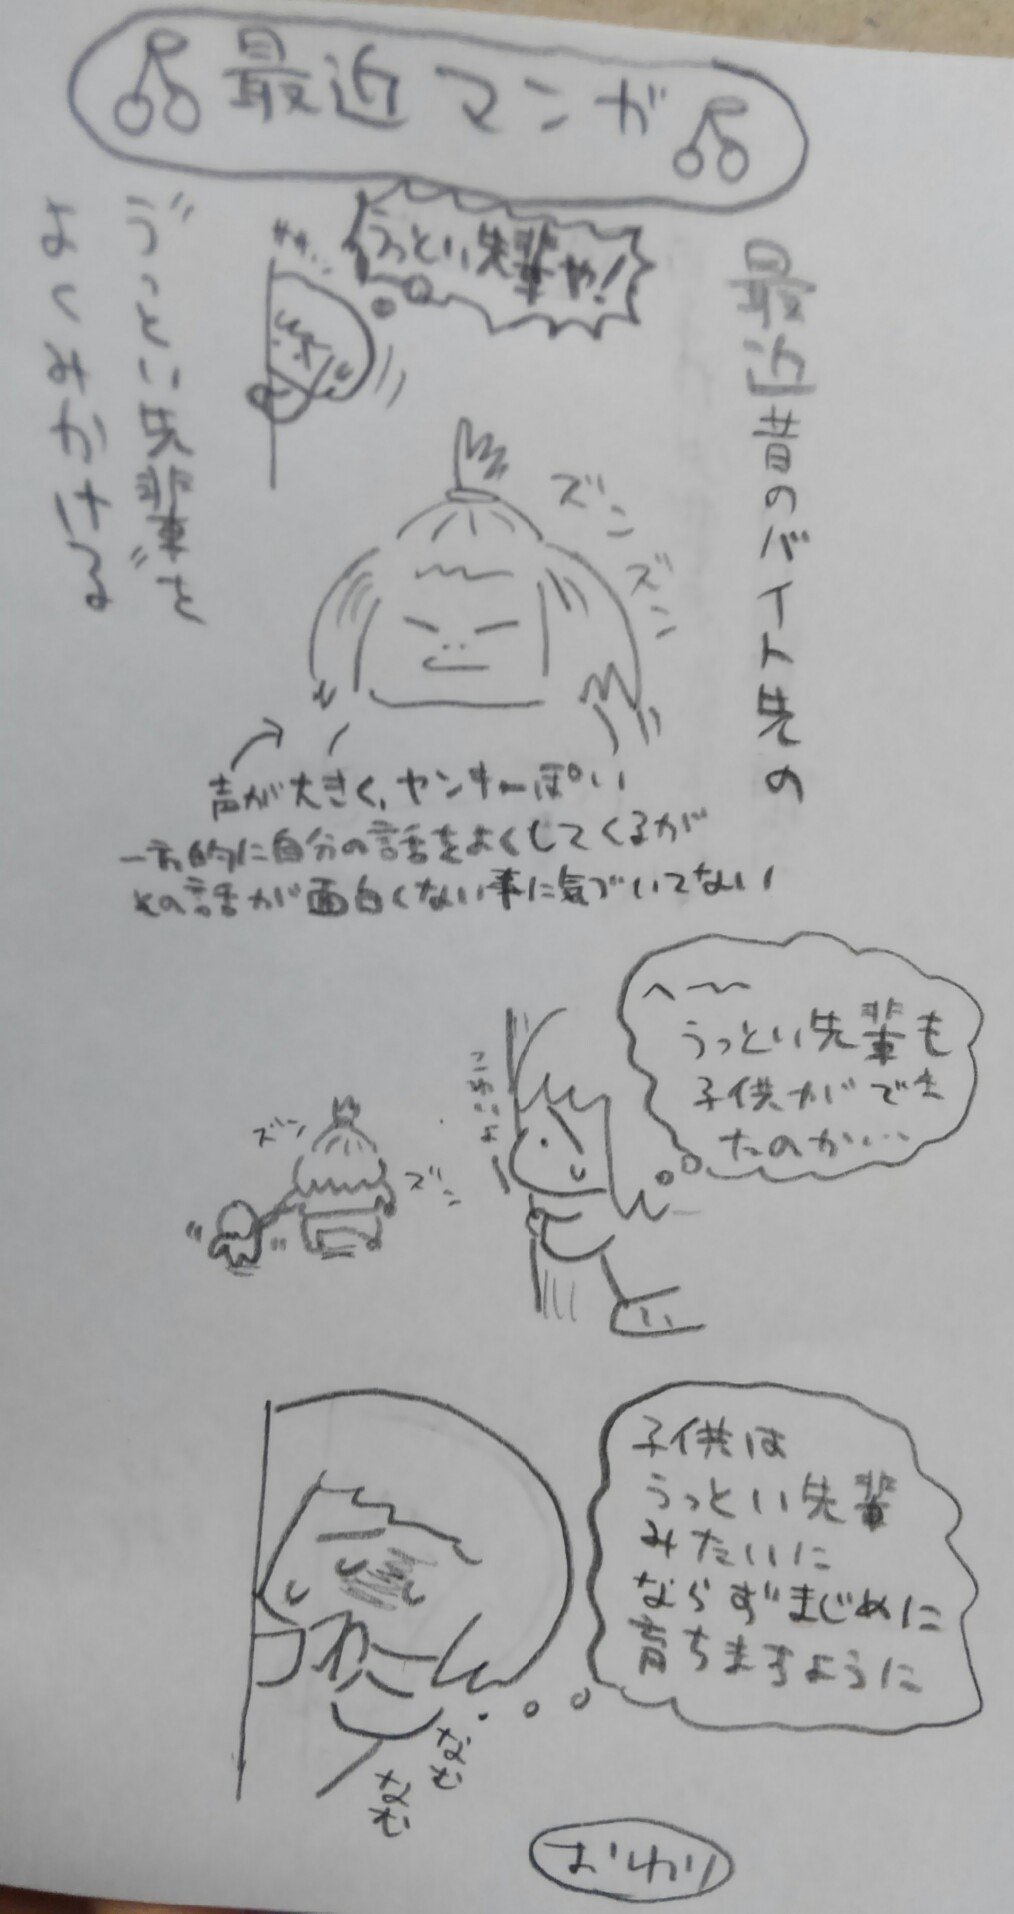 最近マンガ
最近昔のバイト先の
"うっとい先輩"を
よくみかける
ササ…
うっとい先輩や!
ズン
ズン
声が大きく、ヤンキーぽい
一方的に自分の話をよくしてくるが
その話が面白くない事に気づいてない
へ〜〜
うっとい先輩も
子供ができ
たのか…
こわいよ
ズン
ズン
子供は
うっとい先輩
みたいに
ならずまじめに
育ちますように
なむ
なむ
おわり